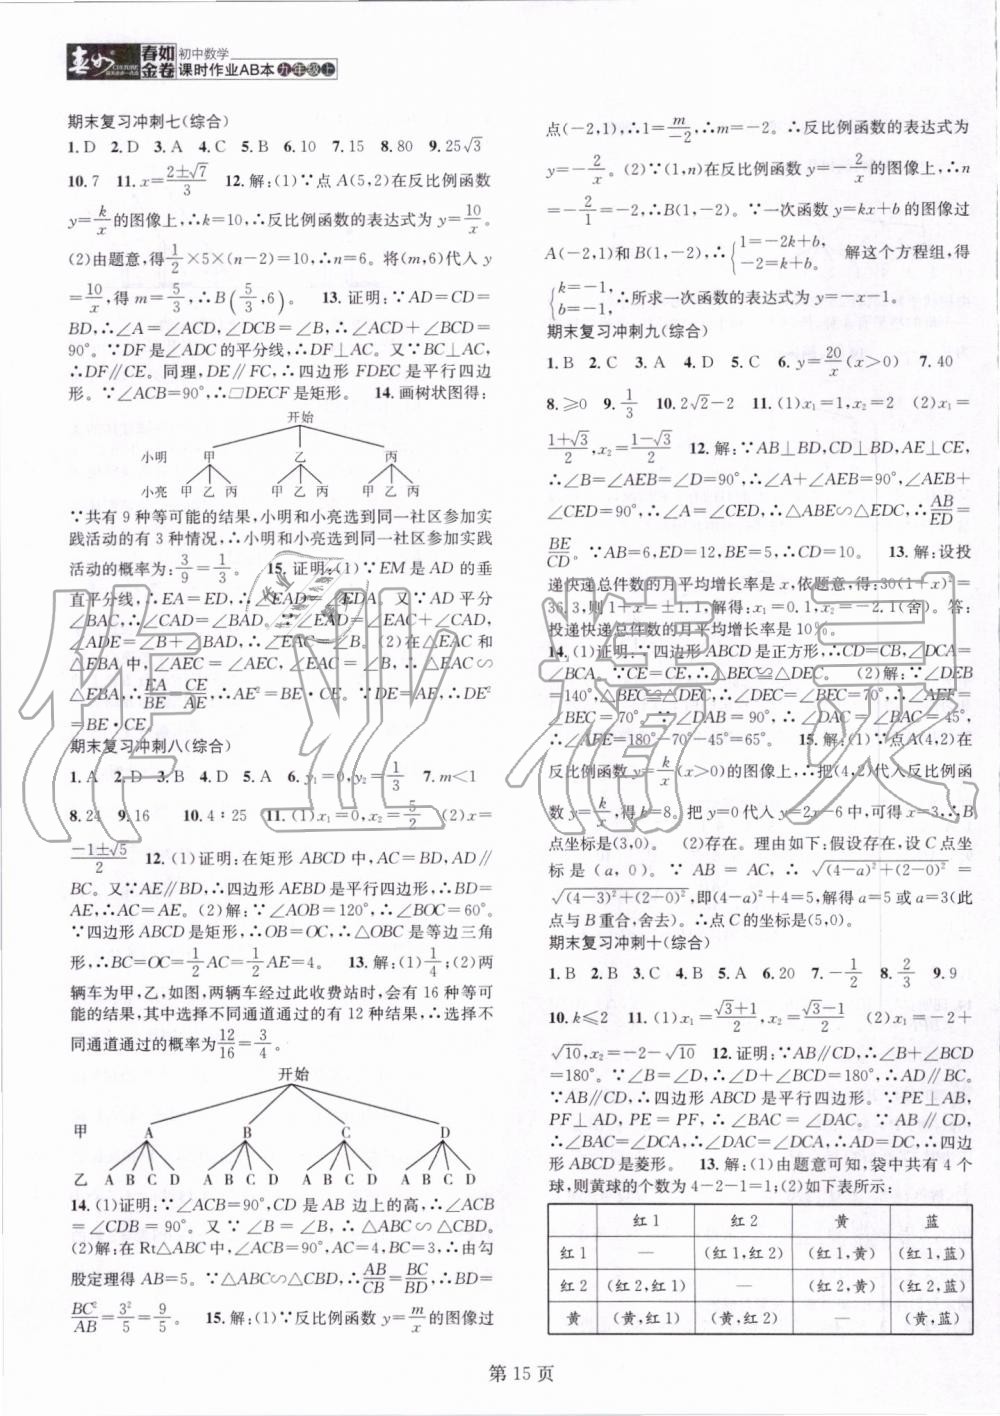 春如金卷
初中数学
课时作业AB本 九年级上
期末复习冲刺七(综合)
1. D 2. D 3. A 4. C 5. B 6. 10 7. 15 8. 80 9. 25√3
10. 7 11. x=(2±√7)/3 12. 解:(1)∵点 A(5,2)在反比例函数
y=k/x的图像上,∴k=10,∴反比例函数的表达式为 y=10/x。
(2)由题意,得1/2×5×(n-2)=10,∴n=6。将(m,6)代入 y
=10/x,得 m=5/3,∴B(5/3,6)。 13. 证明:∵AD=CD=
BD,∴∠A=∠ACD,∠DCB=∠B,∴∠ACD+∠BCD=
90°。∵DF是∠ADC的平分线,∴DF⊥AC。又∵BC⊥AC,
∴DF∥CE。同理,DE∥FC,∴四边形 FDEC 是平行四边
形。∵∠ACB=90°,∴□DECF是矩形。 14. 画树状图得:
开始
小明 甲 乙 丙
小亮 甲 乙 丙 甲 乙 丙 甲 乙 丙
∵共有 9 种等可能的结果,小明和小亮选到同一社区参加实
践活动的有 3 种情况,∴小明和小亮选到同一社区参加实践
活动的概率为:3/9=1/3。 15. 证明:(1)∵EM 是 AD 的垂
直平分线,∴EA=ED,∴∠EAD=∠EDA。又∵AD 平分
∠BAC,∴∠CAD=∠BAD。∵∠EAD=∠EAC+∠CAD,
∠ADE=∠B+∠BAD,∴∠EAC=∠B。(2)在△EAC 和
△EBA 中,∵∠AEC=∠AEC,∠EAC=∠B,∴△EAC∽
△EBA,∴EA/BE=CE/AE,∴AE²=BE·CE,∵DE=AE,∴DE²
=BE·CE
期末复习冲刺八(综合)
1. A 2. D 3. B 4. D 5. A 6. y₁=0,y₂=1/3 7. m<1
8. 24 9. 16 10. 4∶25 11. (1)x₁=0,x₂=5/2 (2)x=
(-1±√5)/2 12. (1)证明:在矩形 ABCD 中,AC=BD,AD∥
BC。又∵AE∥BD,∴四边形 AEBD 是平行四边形,∴BD=
AE,∴AC=AE。(2)解:∵∠AOB=120°,∴∠BOC=60°。
∵四边形 ABCD 是矩形,∴OB=OC,∴△OBC 是等边三角
形,∴BC=OC=1/2AC=1/2AE=4。 13. 解:(1)1/4;(2)两
辆车为甲,乙,如图,两辆车经过此收费站时,会有 16 种等可
能的结果,其中选择不同通道通过的有 12 种结果,∴选择不
同通道通过的概率为12/16=3/4。
开始
甲 A B C D
乙 A B C D A B C D A B C D A B C D
14. (1)证明:∵∠ACB=90°,CD 是 AB 边上的高,∴∠ACB
=∠CDB = 90°。又∵∠B =∠B,∴△ABC∽△CBD。
(2)解:在 Rt△ABC 中,∠ACB=90°,AC=4,BC=3,∴由勾
股定理得 AB=5。∵△ABC∽△CBD,∴AB/CB=BC/BD,∴BD=
BC²/AB=3²/5=9/5。 15. 解:(1)∵反比例函数 y=m/x的图像过
点(-2,1),∴1=m/-2,∴m=-2。∴反比例函数的表达式为
y=-2/x。(2)∵(1,n)在反比例函数 y=-2/x的图像上,∴n
=-2/1=-2,∴B(1,-2)。∵一次函数 y=kx+b 的图像过
A(-2,1)和 B(1,-2),∴{1=-2k+b, -2=k+b。 解这个方程组,得
{k=-1, b=-1, ∴所求一次函数的表达式为 y=-x-1。
期末复习冲刺九(综合)
1. B 2. C 3. A 4. D 5. C 6. y=20/x(x>0) 7. 40
8. ≥0 9. 1/3 10. 2√2-2 11. (1)x₁=1,x₂=2 (2)x₁=
(1+√3)/2,x₂=(1-√3)/2 12. 解:∵AB⊥BD,CD⊥BD,AE⊥CE,
∴∠B=∠AEC=∠D=90°,∴∠A+∠AEB=90°,∠AEB+
∠CED=90°,∴∠A=∠CED,∴△ABE∽△EDC,∴AB/ED=
BE/CD。∵AB=6,ED=12,BE=5,∴CD=10。 13. 解:设投
递快递总件数的月平均增长率是 x,依题意,得:30(1+x)²=
36.3,则 1+x=±1.1,解得:x₁=0.1,x₂=-2.1(舍)。答:
投递快递总件数的月平均增长率是 10%。
14. (1)证明:∵四边形 ABCD 是正方形,∴CD=CB,∠DCA=
∠BCA。∵CE=CE,∴△BEC≌△DEC。 (2)解:∵∠DEB
=140°,△BEC≌△DEC,∴∠DEC=∠BEC=70°,∴∠AEF=
∠BEC=70°。∵∠DAB = 90°,∴∠DAC = ∠BAC = 45°,
∴∠AFE=180°-70°-45°=65°。 15. 解:(1)∵点A(4,2)在
反比例函数 y=k/x(x>0)的图像上,∴把(4,2)代入反比例函
数 y=k/x,得 k=8。把 y=0 代入 y=2x-6 中,可得 x=3,∴B
点坐标是(3,0)。 (2)存在。理由如下:假设存在,设 C 点坐
标是(a,0)。∵AB=AC,∴√((4-a)²+(2-0)²)=
√((4-3)²+(2-0)²),即(4-a)²+4=5,解得 a=5 或 a=3(此
点与 B 重合,舍去)。∴点 C 的坐标是(5,0)。
期末复习冲刺十(综合)
1. B 2. B 3. C 4. B 5. A 6. 20 7. -1/2 8. 2/3 9. 9
10. k≤2 11. (1)x₁=(√3+1)/2,x₂=(√3-1)/2 (2)x₁=-2+
√10,x₂=-2-√10 12. 证明:∵AB∥CD,∴∠B+∠BCD
=180°。∵∠B=∠D,∴∠D+∠BCD=180°,∴AD∥BC。
∵AB∥CD,∴四边形 ABCD 是平行四边形。∵PE⊥AB,
PF⊥AD,PE=PF,∴∠BAC=∠DAC。∵AB∥CD,
∴∠BAC=∠DCA,∴∠DAC=∠DCA,∴AD=DC,∴四边
形 ABCD 是菱形。 13. 解:(1)由题意可知,袋中共有 4 个
球,则黄球的个数为 4-2-1=1;(2)如下表所示:
红1 红2 黄 蓝
红1 — (红1,红2) (红1,黄) (红1,蓝)
红2 (红2,红1) — (红2,黄) (红2,蓝)
黄 (黄,红1) (黄,红2) — (黄,蓝)
第 15 页
作业精灵